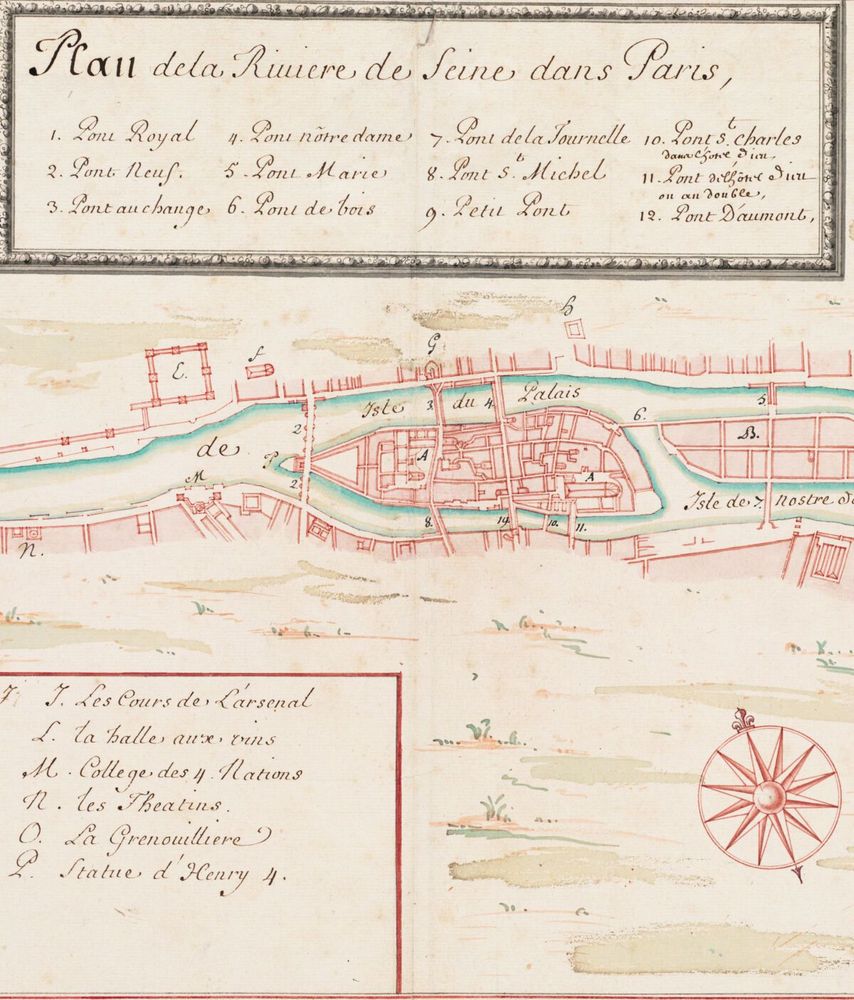 Plan dela Riviere de Seine dans Paris,
1. Pont Royal
2. Pont Neuf.
3. Pont au change
4. Pont nôtre dame
5. Pont Marie
6. Pont de bois
7. Pont de la Tournelle
8. Pont St. Michel
9. Petit Pont
10. Pont St. Charles
dans l'hôtel d'ieu
11. Pont de l'hôtel d'ieu
ou au double,
12. Pont D'aumont,
H
G
F
E.
Isle du Palais
3.
4.
5.
2
6.
B.
de
P
A
A
2
M
Isle de nostre
7.
8.
14.
10.
11.
N.
J. Les Cours de L'arsenal
L. la halle aux vins
M. College des 4. Nations
N. les Theatins.
O. La Grenouilliere
P. Statue d'Henry 4.